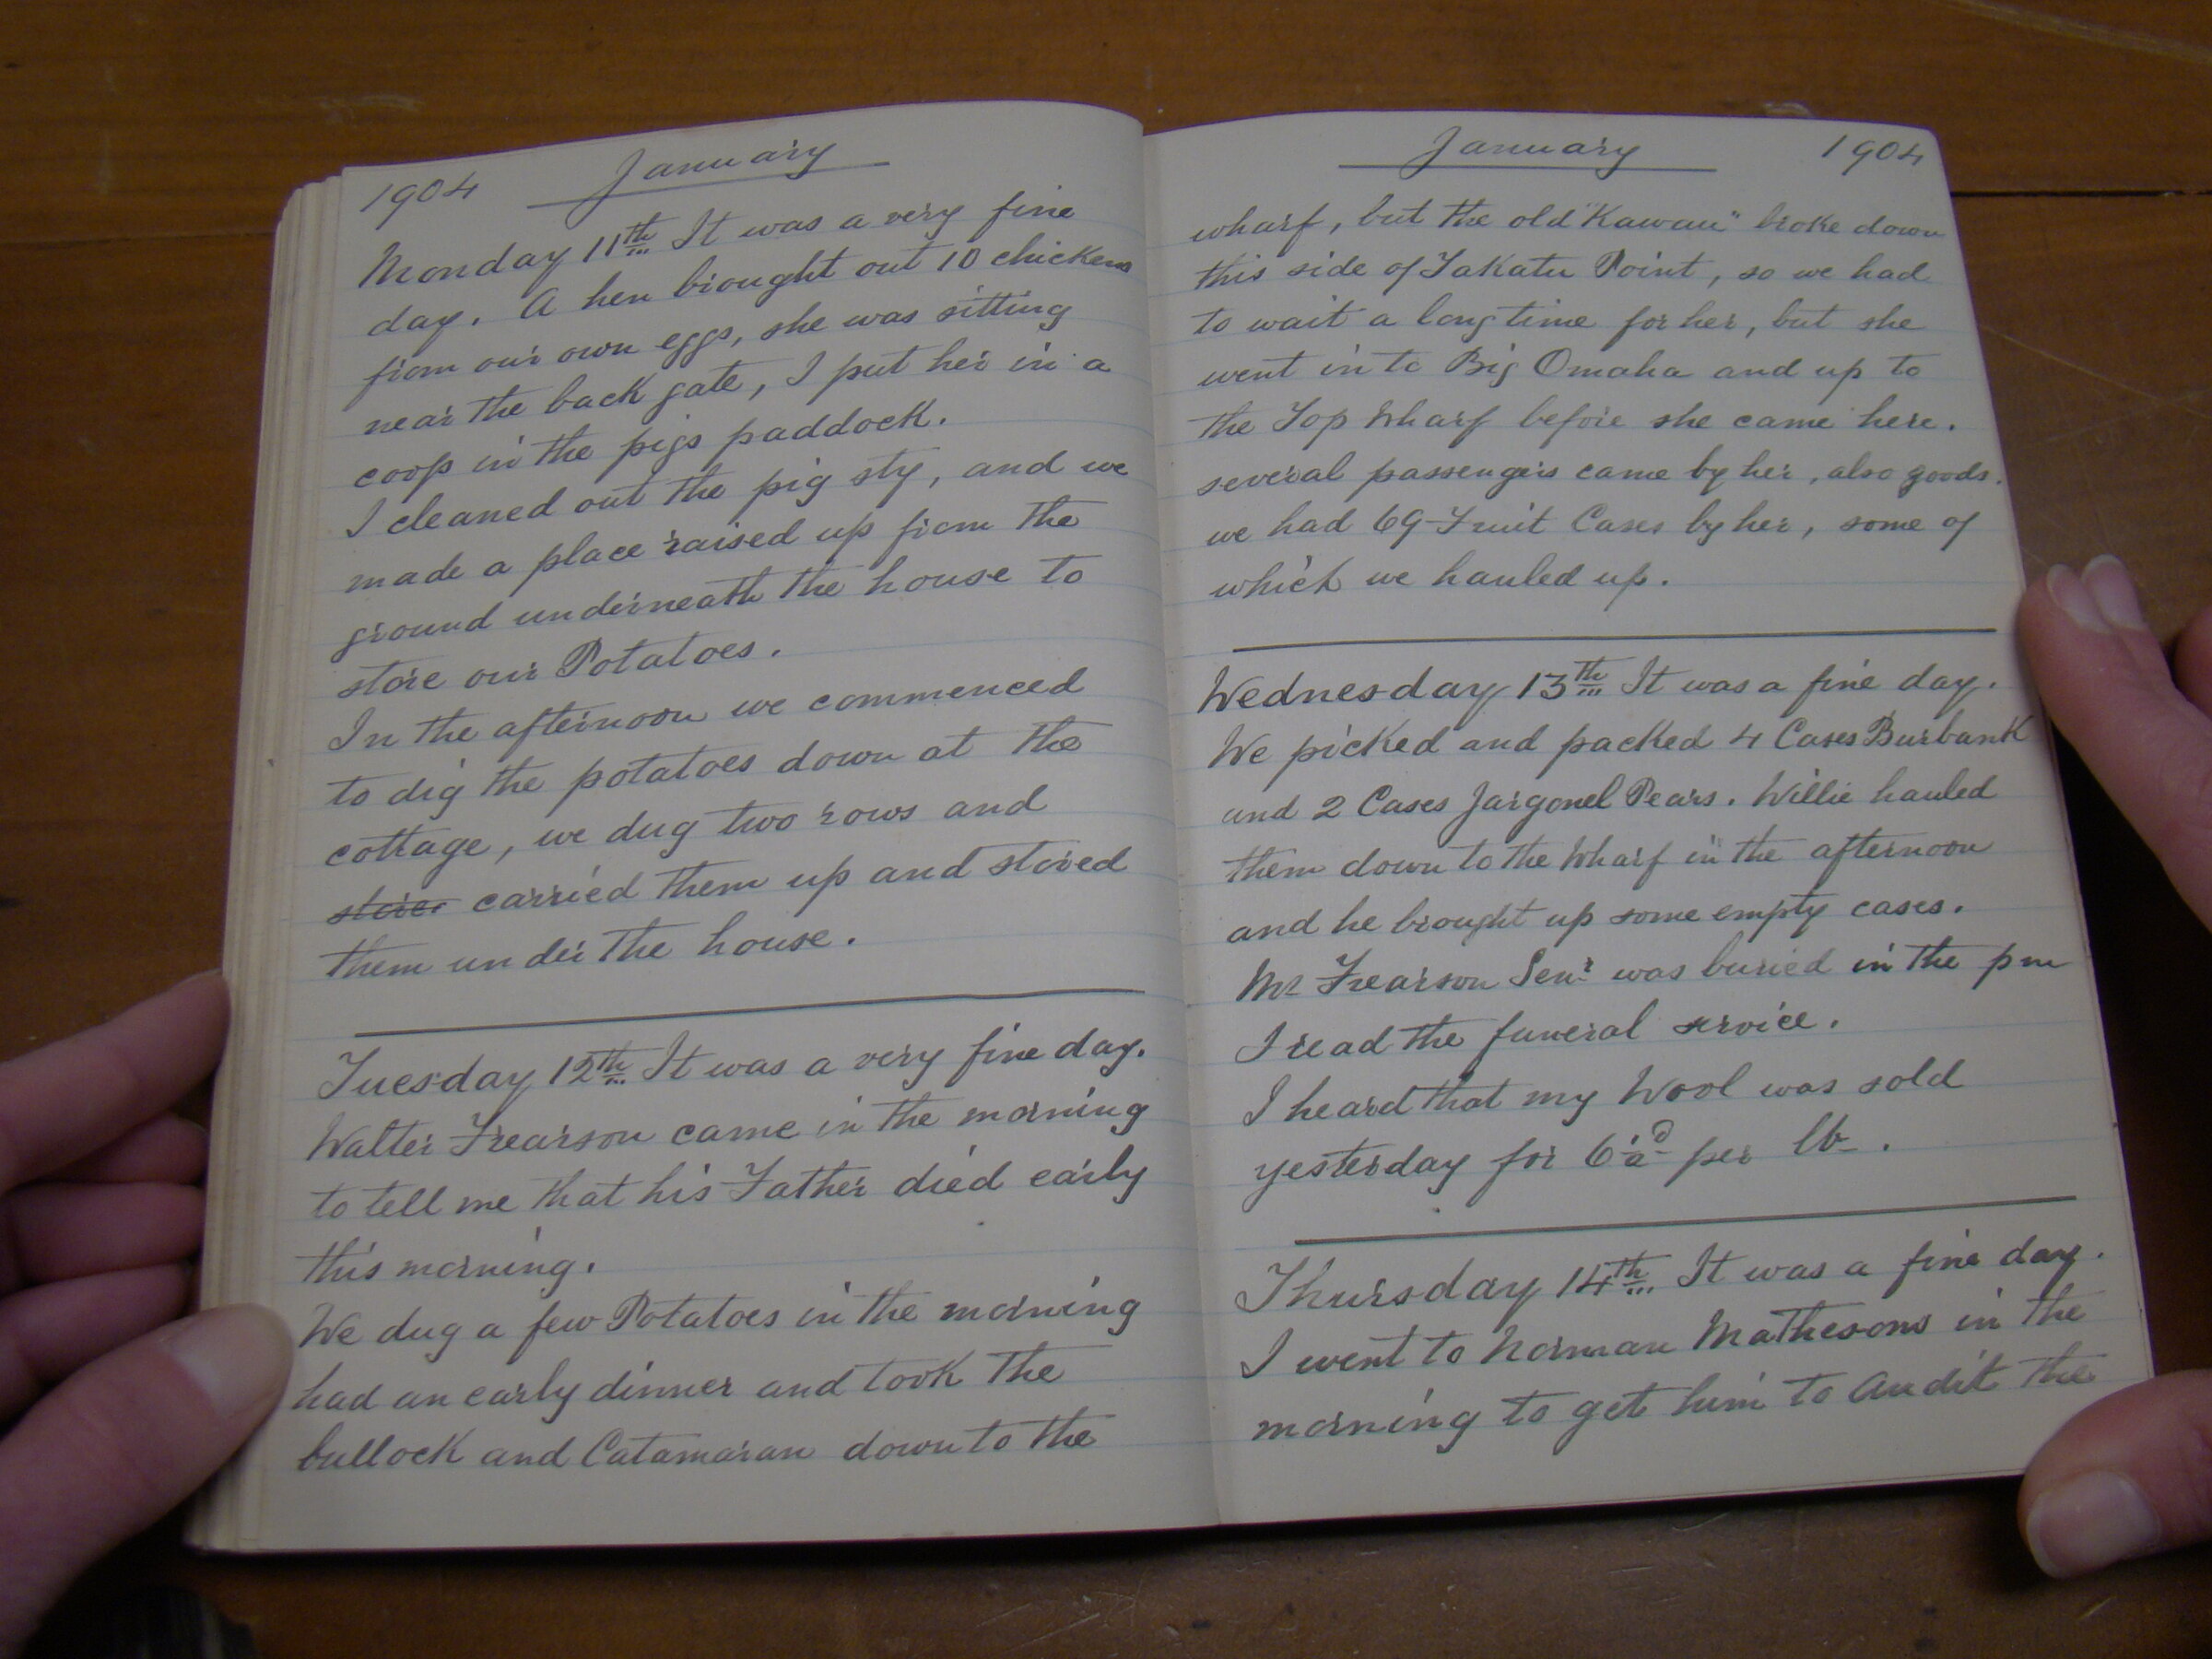 1904 January
Monday 11th It was a very fine
day. A hen brought out 10 chickens
from our own eggs, she was sitting
near the back gate, I put her in a
coop in the pigs paddock.
I cleaned out the pig sty, and we
made a place raised up from the
ground underneath the house to
store our Potatoes.
In the afternoon we commenced
to dig the potatoes down at the
cottage, we dug two rows and
carried them up and stored
them under the house.
Tuesday 12th It was a very fine day.
Walter Frearson came in the morning
to tell me that his Father died early
this morning.
We dug a few Potatoes in the morning
had an early dinner and took the
bullock and Catamaran down to the
January 1904
wharf, but the old "Kawau" broke down
this side of Takatu Point, so we had
to wait a long time for her, but she
went in to Big Omaha and up to
the Top Wharf before she came here.
several passengers came by her, also goods.
we had 69 Fruit Cases by her, some of
which we hauled up.
Wednesday 13th It was a fine day.
We picked and packed 4 Cases Burbank
and 2 Cases Jargonel Pears. Willie hauled
them down to the Wharf in the afternoon
and he brought up some empty cases.
Mr Frearson Senr was buried in the pm
I read the funeral service.
I heard that my Wool was sold
yesterday for 6½d per lb.
Thursday 14th It was a fine day.
I went to Norman Mathesons in the
morning to get him to Audit the